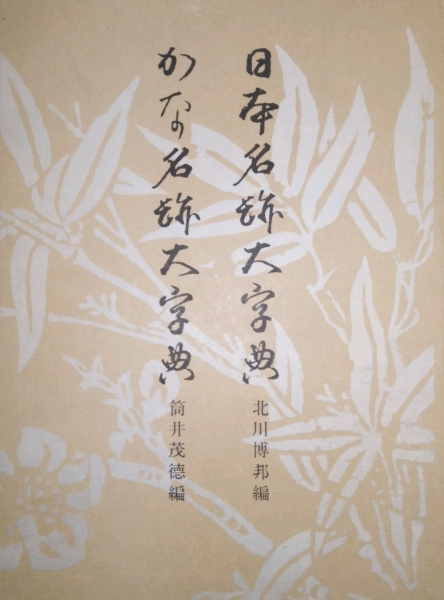 日本名跡大字典 北川博邦編
かな名跡大字典 筒井茂徳編